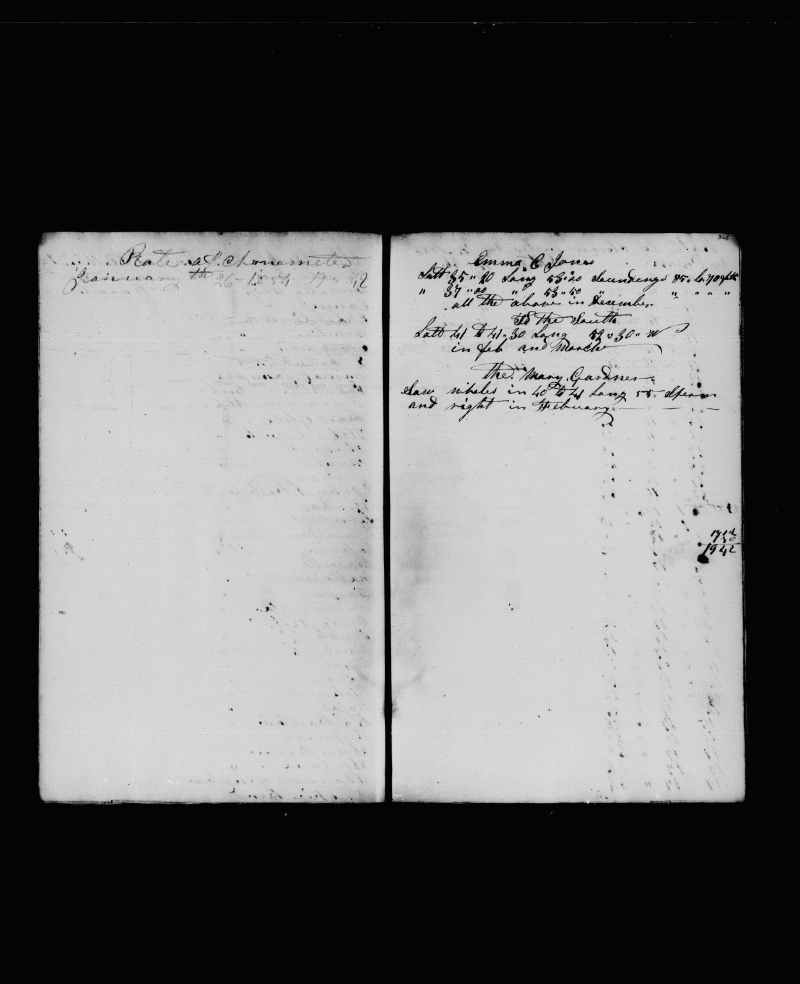 Rate of Chronometer
January th 26 - 1854 19
Emma C Jones
Latt 35 " 10 Long 53 " 20 Soundings 45 to 70 fth
" 37 " 00 " 53 " 50 " " " " "
all the above in December
To the South
Latt 41 to 41.30 Long 52 " 30 " W
in feb and March
the Mary Gardner
Saw whales in 40 to 41 Long 55 Sperm
and right in Febuary
1942